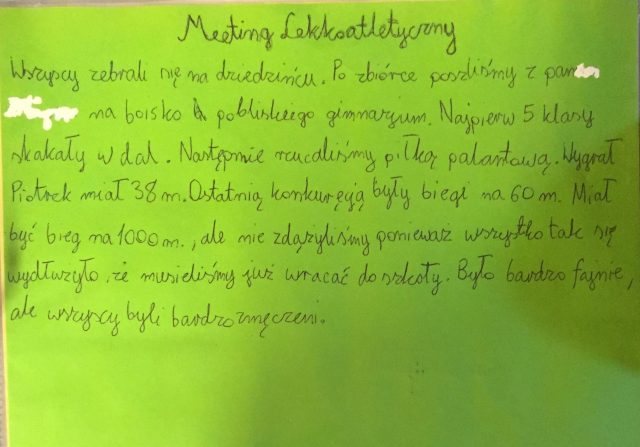 Meeting Lekkoatletyczny
Wszyscy zebrali się na dziedzińcu. Po zbiórce poszliśmy z pan
na boisko pobliskiego gimnazjum. Najpierw 5 klasy
skakały w dal. Następnie rzucaliśmy piłką palantową. Wygrał
Piotrek miał 38 m. Ostatnią konkuręcją były biegi na 60 m. Miał
być bieg na 1000 m., ale nie zdążyliśmy ponieważ wszystko tak się
wydłwżyło, że musieliśmy już wracać do szkoły. Było bardzo fajnie,
ale wszyscy byli bardzo zmęczeni.